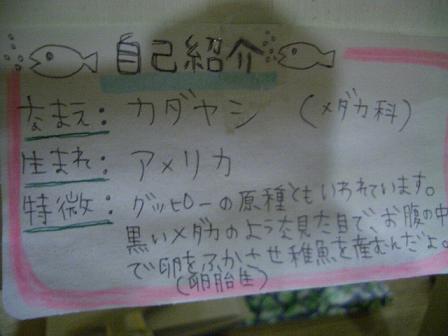 自己紹介
なまえ：カダヤシ（メダカ科）
生まれ：アメリカ
特徴：グッピーの原種ともいわれています。
黒いメダカのような見た目で、お腹の中
で卵をふかさせ稚魚を産むんだよ。
（卵胎生）